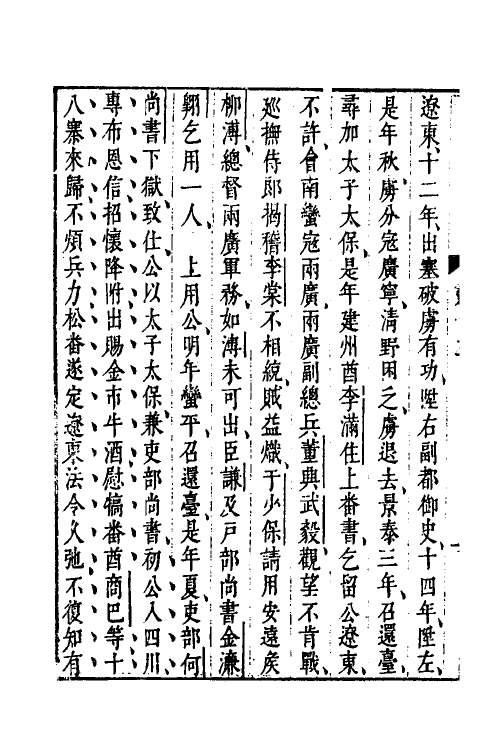 遼東十二年出塞破虜有功陞右副都御史十四年陞左
是年秋虜分寇廣寧清野困之虜退去景泰三年召還臺
尋加太子太保是年建州酋李滿住上番書乞留公遼東
不許會南蠻寇兩廣兩廣副總兵董興武毅觀望不肯戰
廵撫侍郎揭稽李棠不相統賊益熾于少保請用安遠矦
柳溥總督兩廣軍務如溥未可出臣謙及戸部尚書金濂
翺乞用一人　上用公明年蠻平召還臺是年夏吏部何
尚書下獄致仕公以太子太保兼吏部尚書初公入四川
專布恩信招懷降附出賜金市牛酒慰犒番酋商巴等十
八寨來歸不煩兵力松番遂定遼東法令久弛不復知有